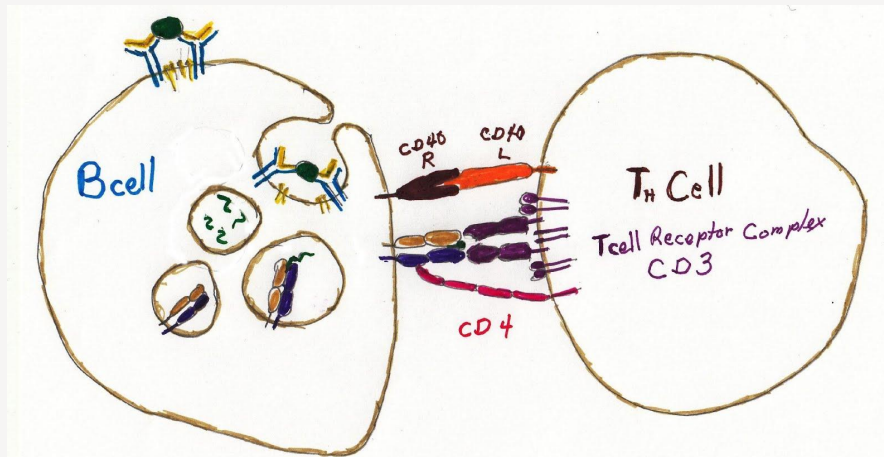 B cell
CD40
R
CD40
L
TH Cell
T cell Receptor Complex
CD3
CD4